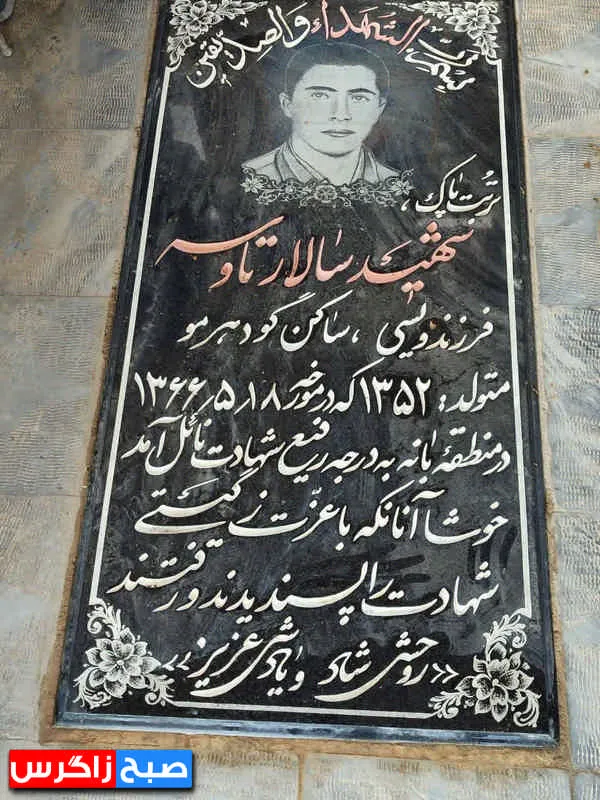 بسم رب الشهداء والصدیقین
تربت پاک،
شهید سالار تاوسه
فرزند ویسی، ساکن گود هرمو
متولد: ۱۳۵۲ که در مورخه ۱۳۶۶/۵/۱۸
در منطقه بانه به درجه رفیع شهادت نائل آمد
خوشا آنانکه با عزت ز گیتی
شهادت را پسندیدند و رفتند
«روحش شاد و یادش عزیز»
صبح زاگرس